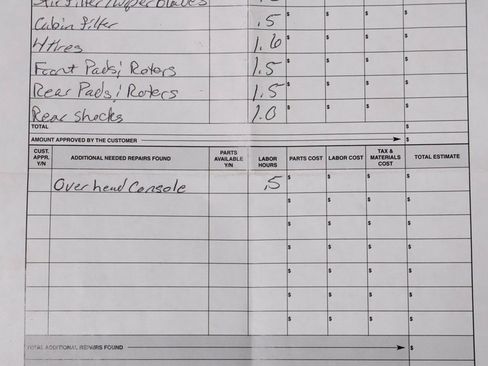 Air Filter/Wiper blades
Cabin filter .5 $ $ $ $
4 tires 1.6 $ $ $ $
Front Pads; Rotors 1.5 $ $ $ $
Rear Pads; Rotors 1.5 $ $ $ $
Rear Shocks 1.0 $ $ $ $
TOTAL $
AMOUNT APPROVED BY THE CUSTOMER $
CUST. APPR. Y/N ADDITIONAL NEEDED REPAIRS FOUND PARTS AVAILABLE Y/N LABOR HOURS PARTS COST LABOR COST TAX & MATERIALS COST TOTAL ESTIMATE
Over head Console .5 $ $ $ $
$ $ $ $
$ $ $ $
$ $ $ $
$ $ $ $
$ $ $ $
$ $ $ $
TOTAL ADDITIONAL REPAIRS FOUND $